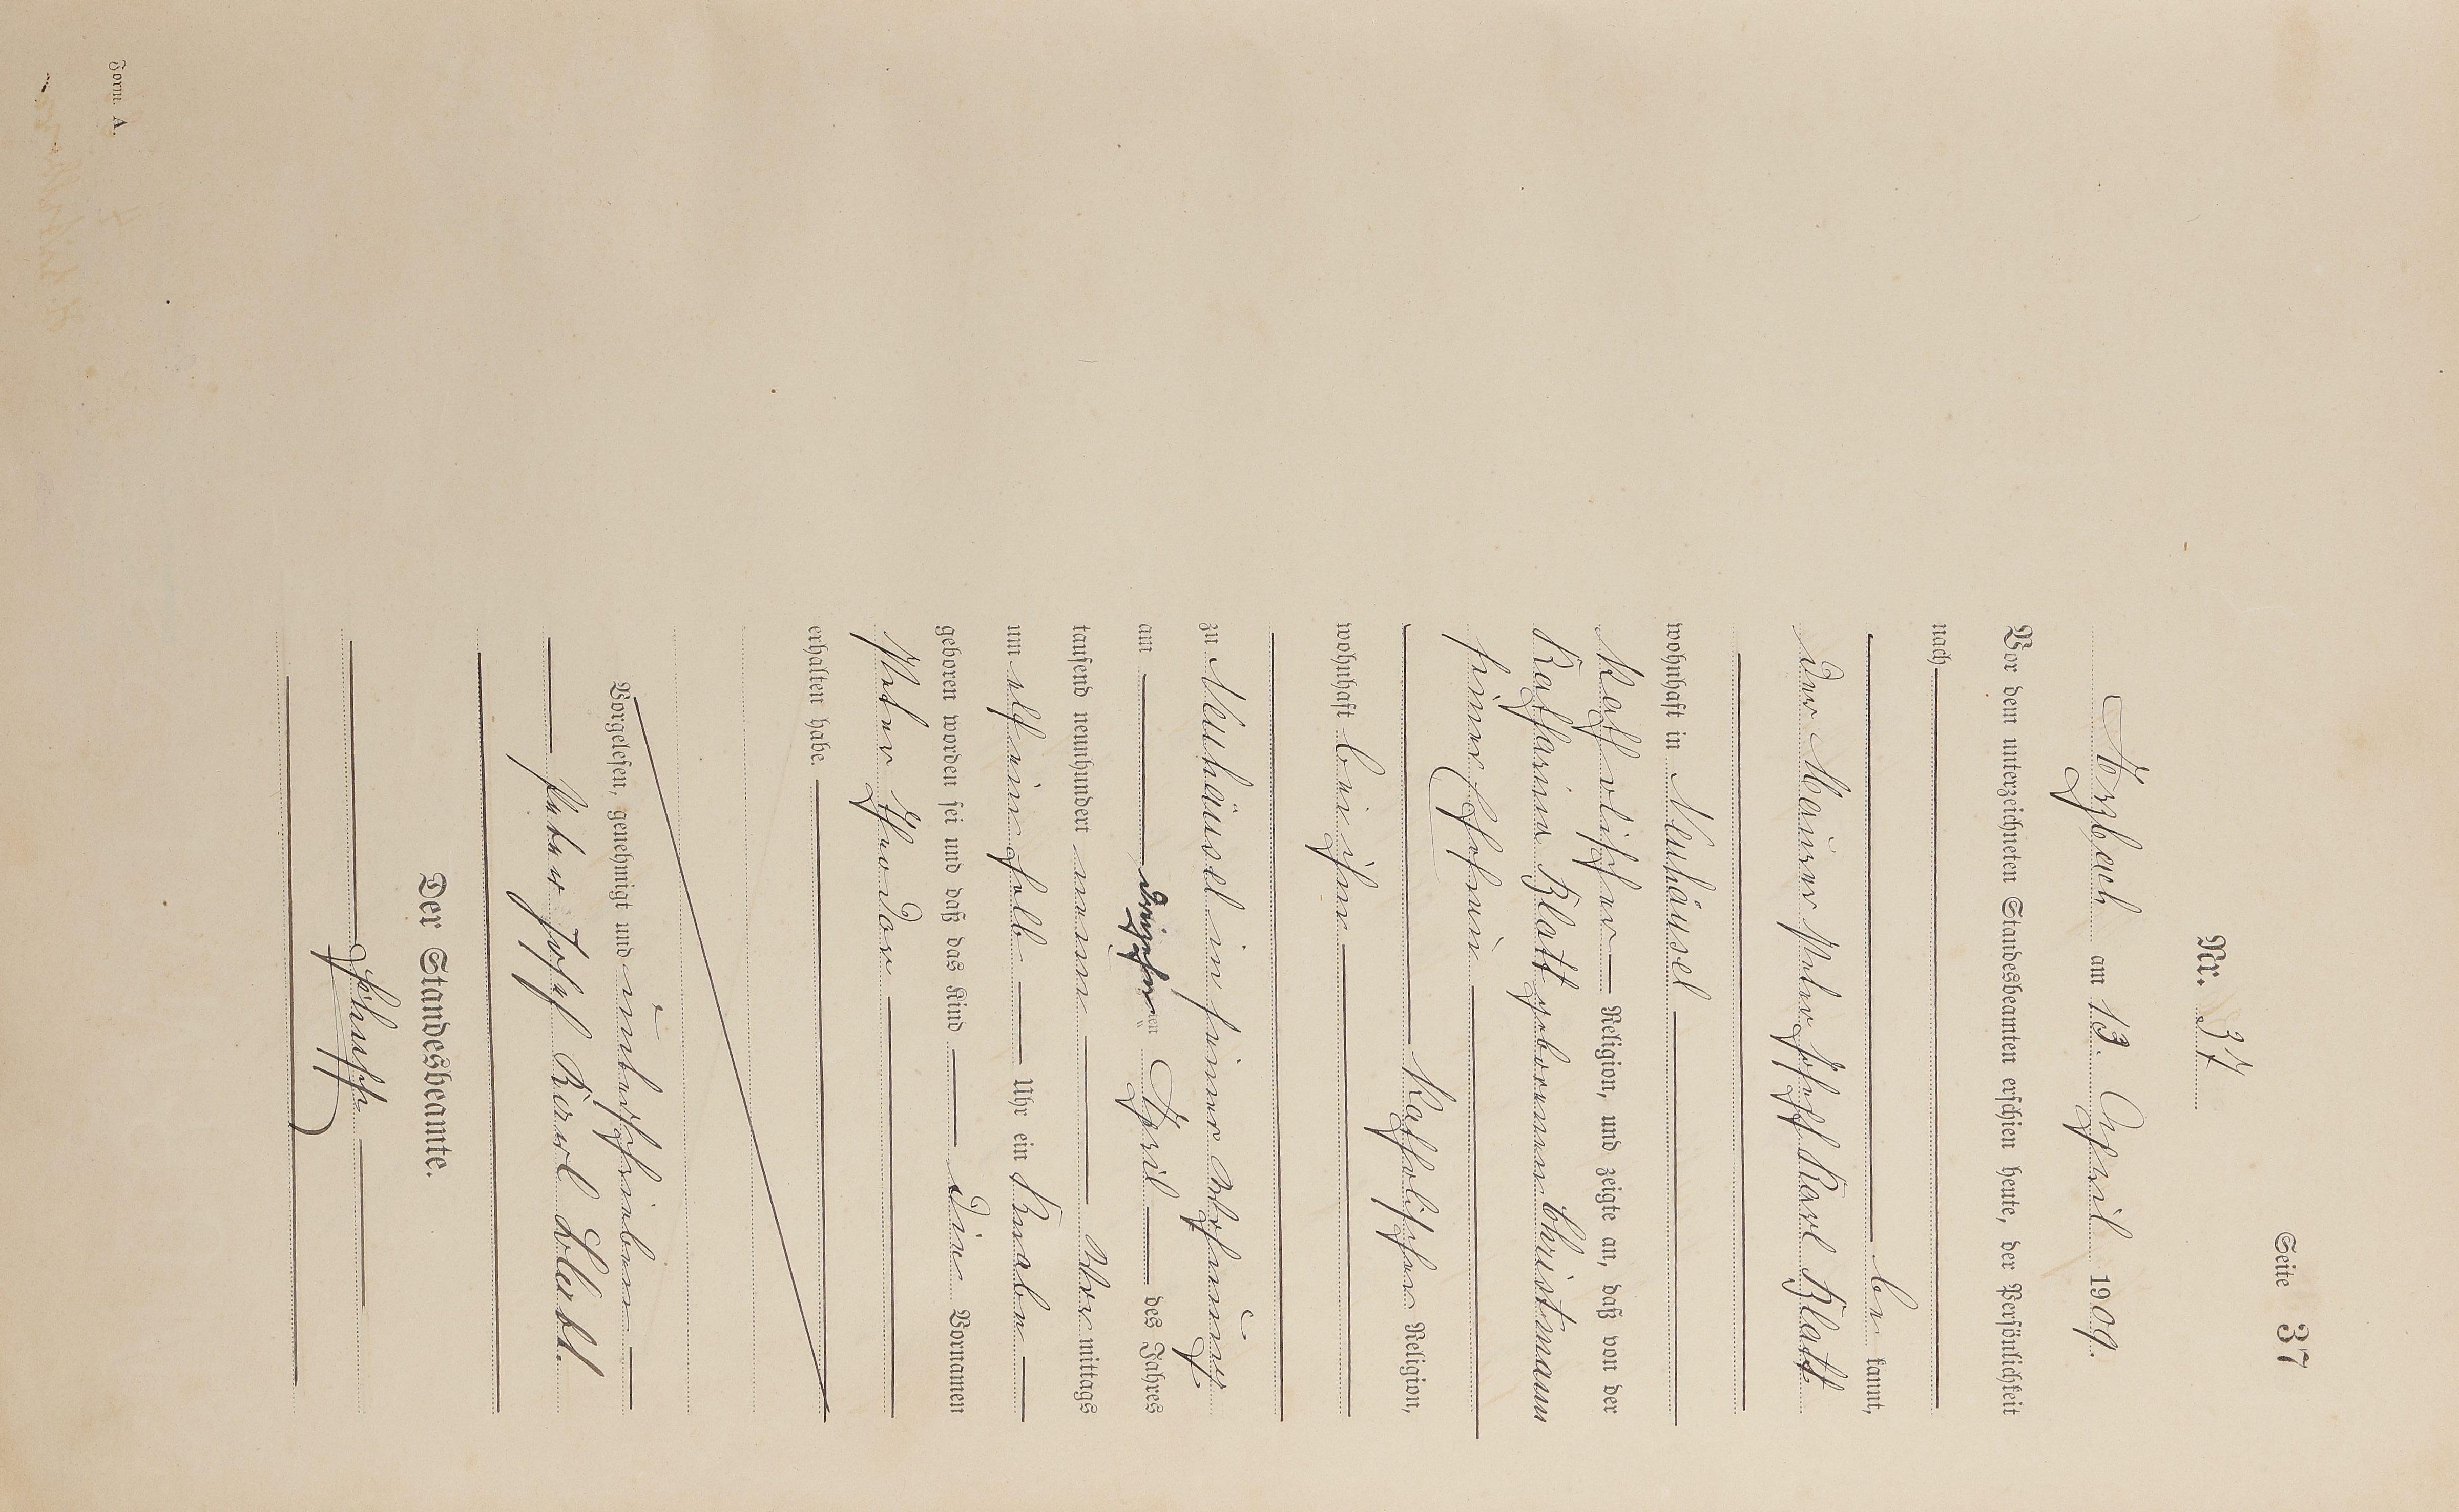 Seite 37
Nr. 37
Arzbach am 13. April 1909.
Vor dem unterzeichneten Standesbeamten erschien heute, der Persönlichkeit
nach
be kannt,
der Maurer Peter Josef Karl Blatt
wohnhaft in Neuhäusel
Katholischer Religion, und zeigte an, daß von der
Katharina Blatt geborenen Christmann
seiner Ehefrau
Katholischer Religion,
wohnhaft bei ihm
zu Neuhäusel in seiner Wohnung
am dreizehnten April des Jahres
tausend neunhundert neun Vor mittags
um elf einhalb Uhr ein Knabe
geboren worden sei und daß das Kind die Vornamen
Peter Theodor
erhalten habe.
Vorgelesen, genehmigt und unterschrieben
Peter Josef Karl Blatt.
Der Standesbeamte.
Form. A.